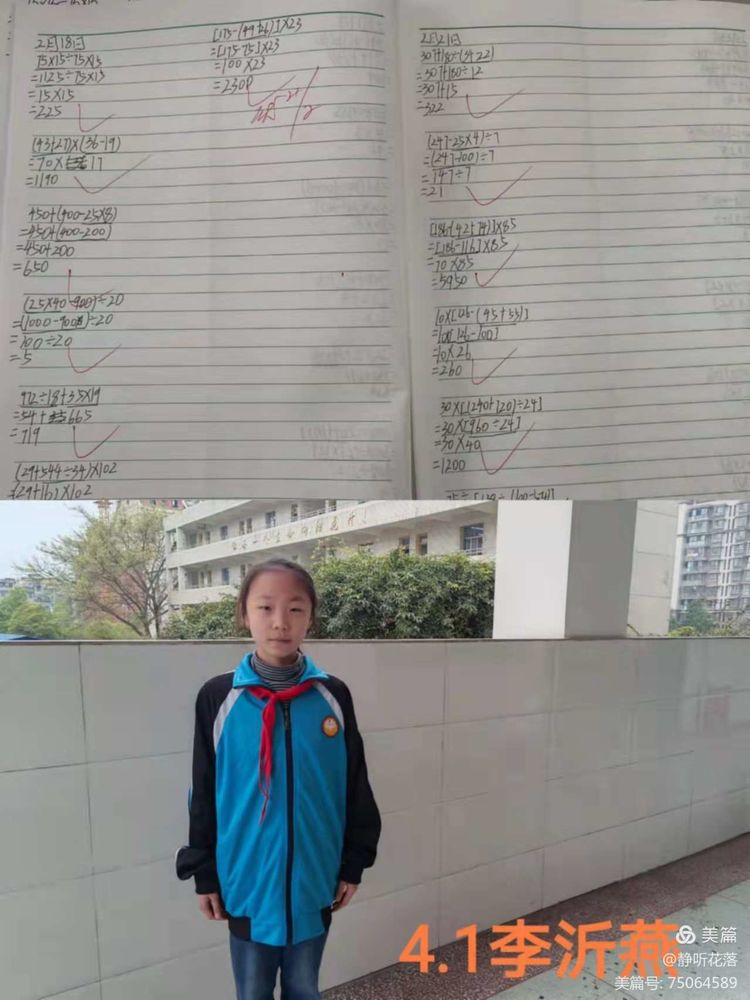 2月18日
75×15÷75×15
=1125÷75×15
=15×15
=225
(43+27)×(36-19)
=70×17
=1190
450+(400-25×8)
=450+(400-200)
=450+200
=650
(25×40-900)÷20
=(1000-900)÷20
=100÷20
=5
972÷18+35×19
=54+665
=719
(29+544÷34)×102
=(29+16)×102
[175-(49+26)]×23
=[175-75]×23
=100×23
=2300
2月21日
307+180÷(34-22)
=307+180÷12
=307+15
=322
(247-25×4)÷7
=(247-100)÷7
=147÷7
=21
[186-(42+74)]×85
=[186-116]×85
=70×85
=5950
10×[126-(45+55)]
=10×[126-100]
=10×26
=260
30×[(240+720)÷24]
=30×[960÷24]
=30×40
=1200
4.1李沂燕
美篇
@静听花落
美篇号: 75064589